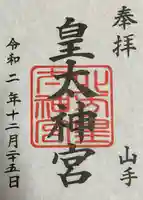 奉拝
山手
皇大神宮
令和二年十二月二十五日